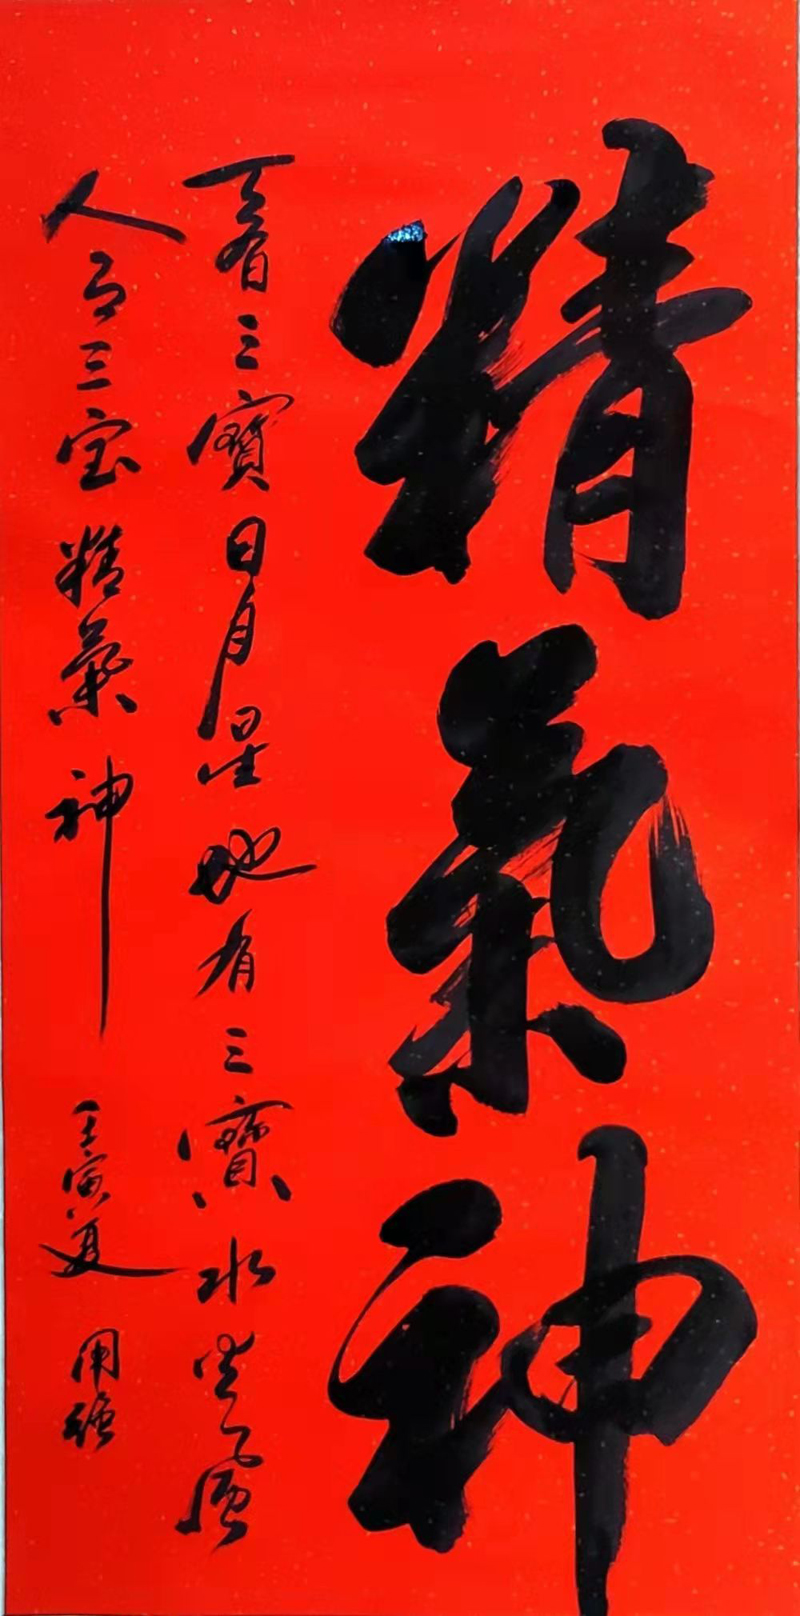 精氣神
天有三寶日月星地有三寶水火風
人有三宝精氣神 壬寅夏 用强